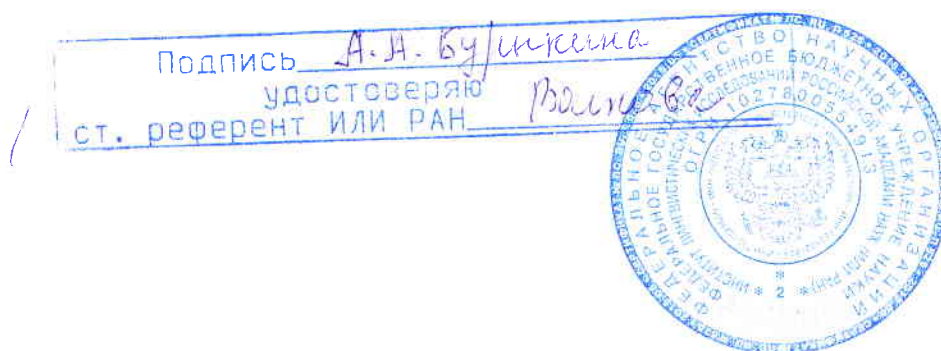 Подпись А.А. Бурыкина
удостоверяю
ст. референт ИЛИ РАН
ФЕДЕРАЛЬНОЕ АГЕНТСТВО НАУЧНЫХ ОРГАНИЗАЦИЙ
ФЕДЕРАЛЬНОЕ ГОСУДАРСТВЕННОЕ БЮДЖЕТНОЕ УЧРЕЖДЕНИЕ НАУКИ
ИНСТИТУТ ЛИНГВИСТИЧЕСКИХ ИССЛЕДОВАНИЙ РОССИЙСКОЙ АКАДЕМИИ НАУК (ИЛИ РАН)
ОГРН 1027800554913
* 2 *